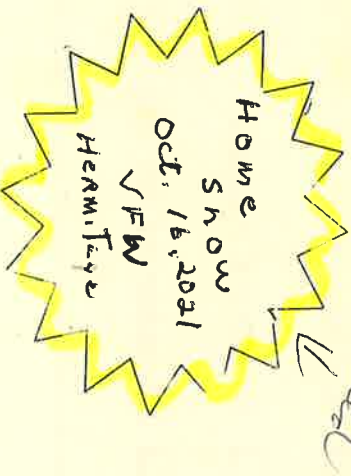 Home
Show
Oct. 16, 2021
VFW
Hermitage